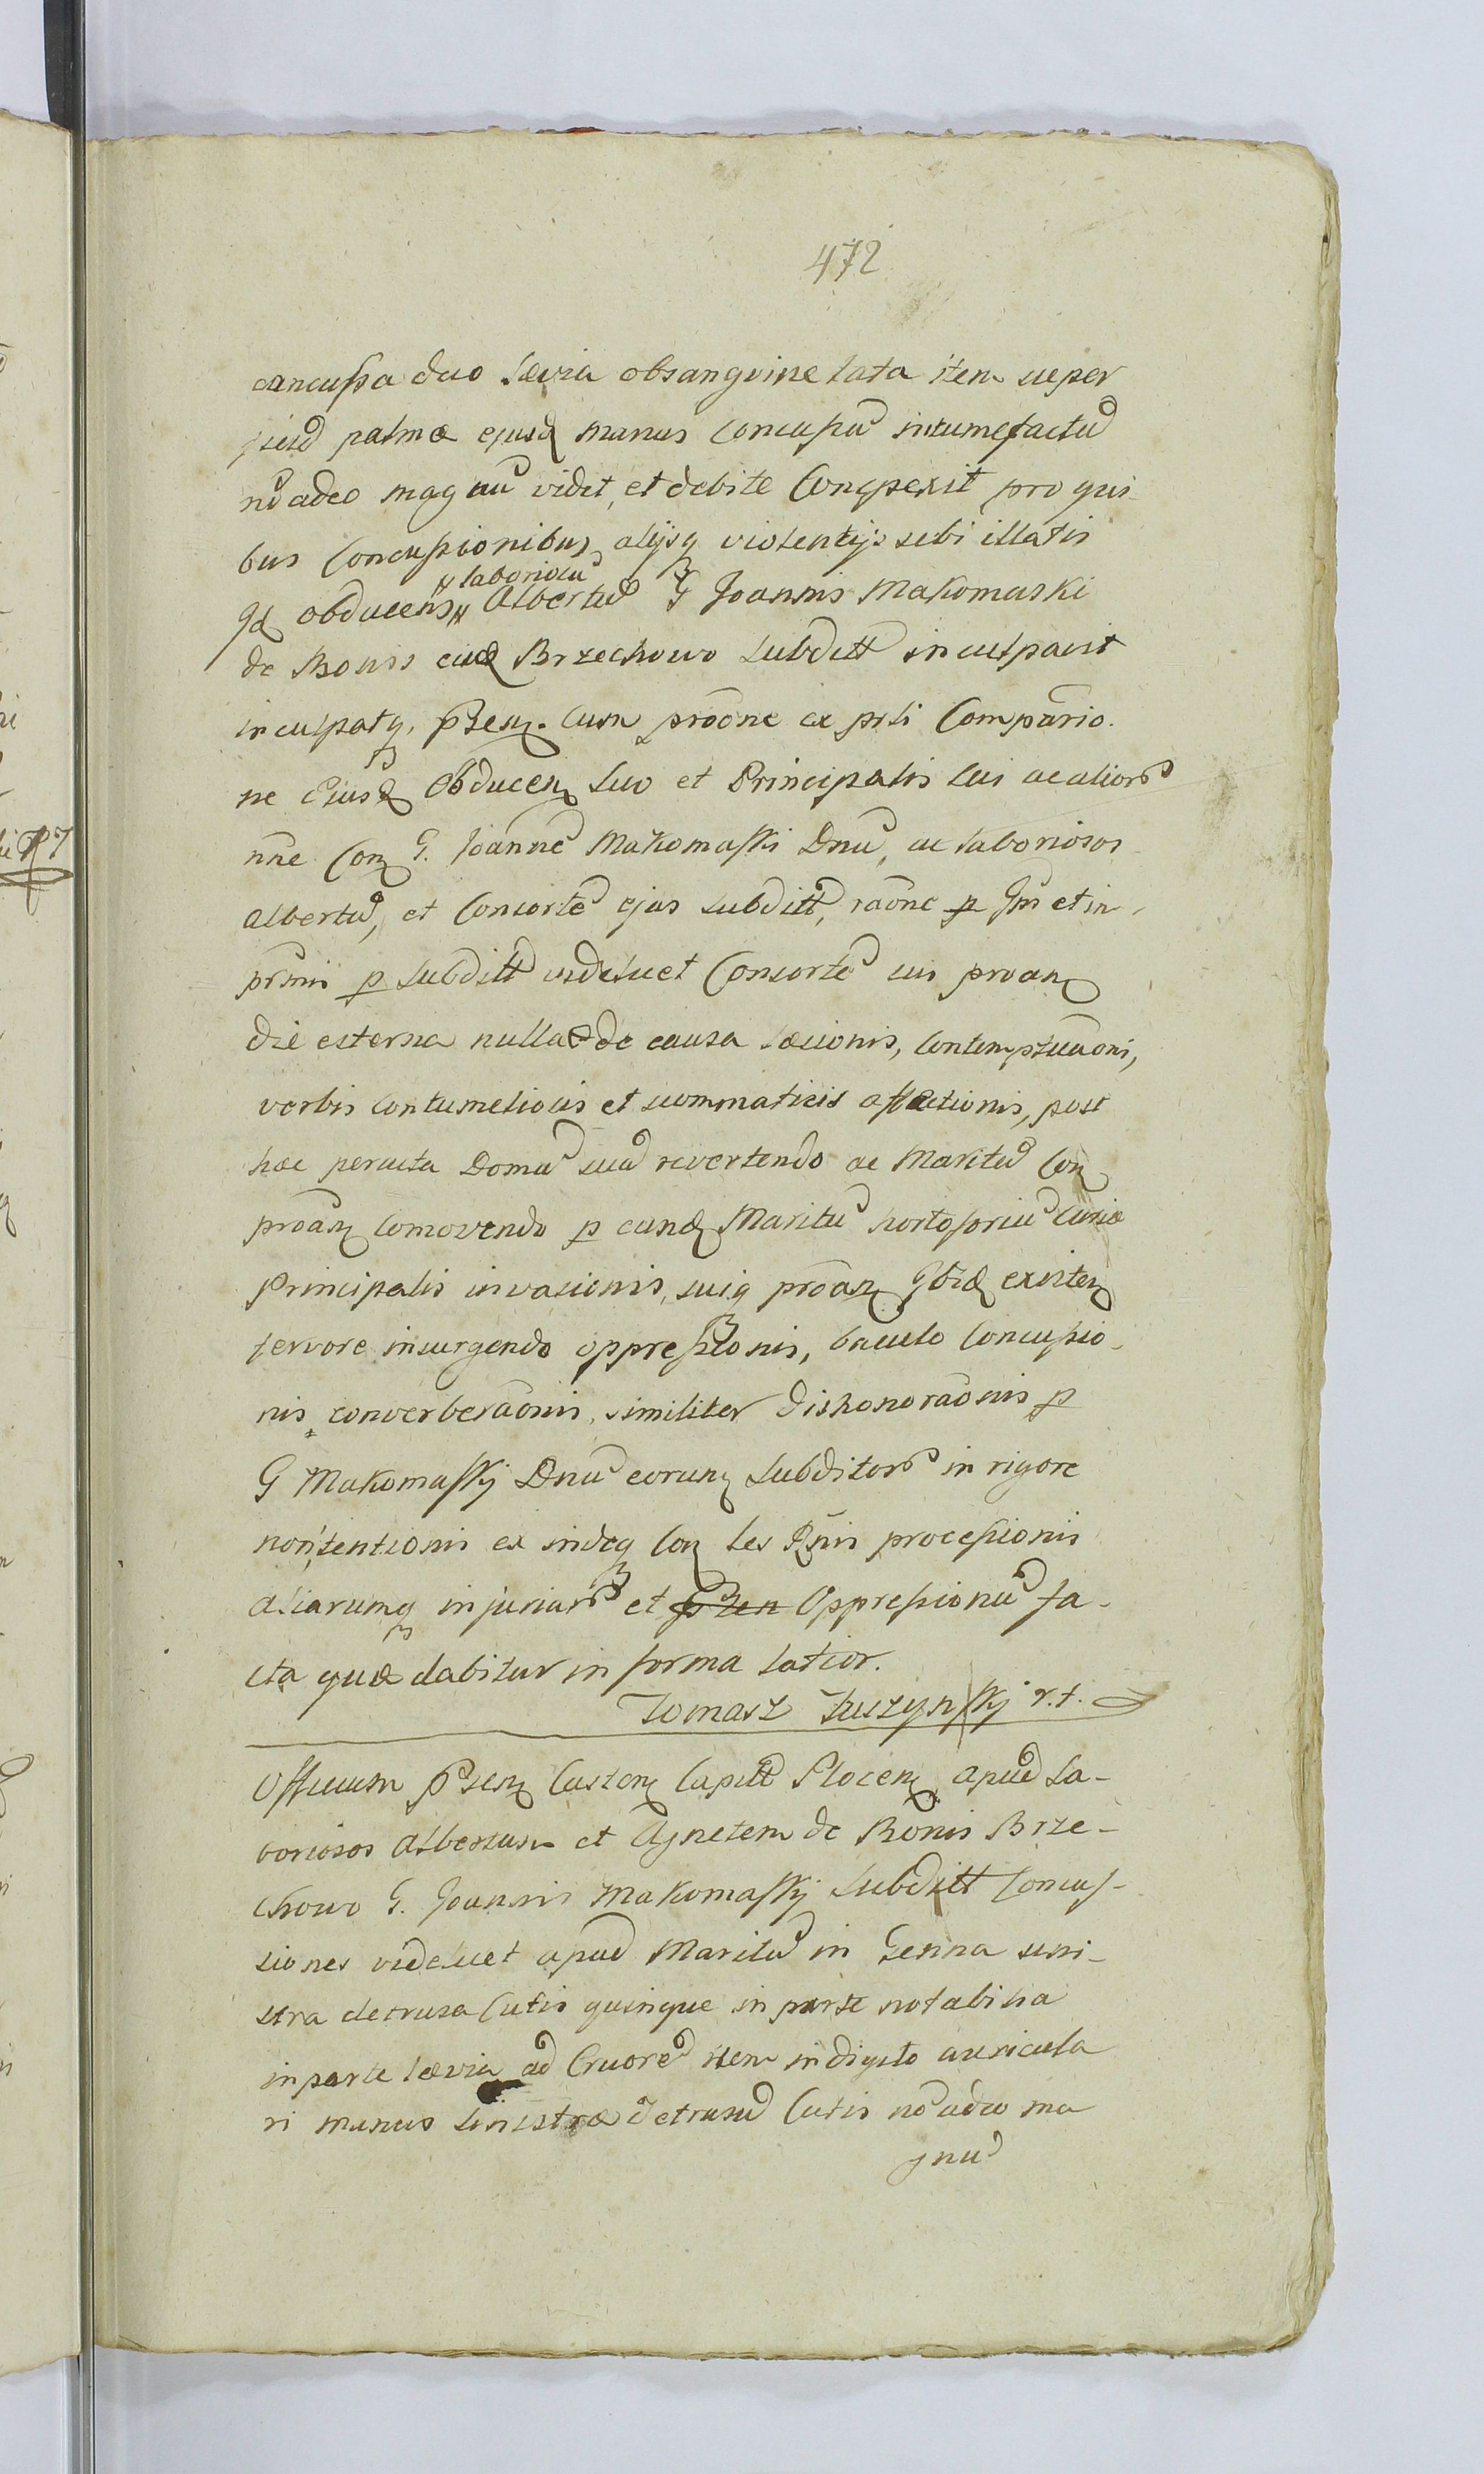 472
concussa duo laevia obsangvine lata item super
ficiū palmæ ejusd manus concusū intumefactū
nō adeo magnū vidit, et debite Conspexit pro qui-
bus Concussionibus alijsq violentijs sibi illatis
laboriosū
qd obducens Albertū G Joannis Makomaski
de Bonis eisd Brzechowo Subditt inculpavit
inculpatq, pñsen. Cum prōōne ex prli Compārio.
ne Ejusd Obducen Suo et Principalis sui ac alior
nne Con G. Joannē Makomasski Dnū, ac laboriosos
Albertū, et Consortē ejus Subditt, raōne p Gm et in,
primi p Subditt videlicet Consortē in proan
die esterna nulla de causa læsionis, Contemptuaōni,
verbis Contumeliosis et scommaticis affectionis, post
hæc peracta Domū suā revertendo ac Maritū Con
proān Comovendo p eund Maritū hortoforiū Curiæ
Principalis invasionis, suiq proān ibid existen
fervore insurgendo oppressionis, baculo Concussio-
nis, converberaōnis, similiter dishonoraōnis p
G Makomasskj Dnū eorum Subditor in rigore
non tentionis ex indeq Con les Rnis processionis
aliarumq injuriar et Oppressionū fa-
cta quæ dabitur in forma latior.
Tomasz Łuszynsskj r.t.
Officium pñsen Castren Capitt Plocen apud La-
boriosos Albertum et Agnetem de Bonis Brze-
chowo G. Joannis Makomasskj Subditt Concus-
siones videlicet apud Maritū in Genna sini-
stra detrusa Cutis quinque in parte notabilia
in parte lævia ad Cruorē item in digito auricula
ri manus sinistræ detrusū Cutis nō adeo ma
gnū